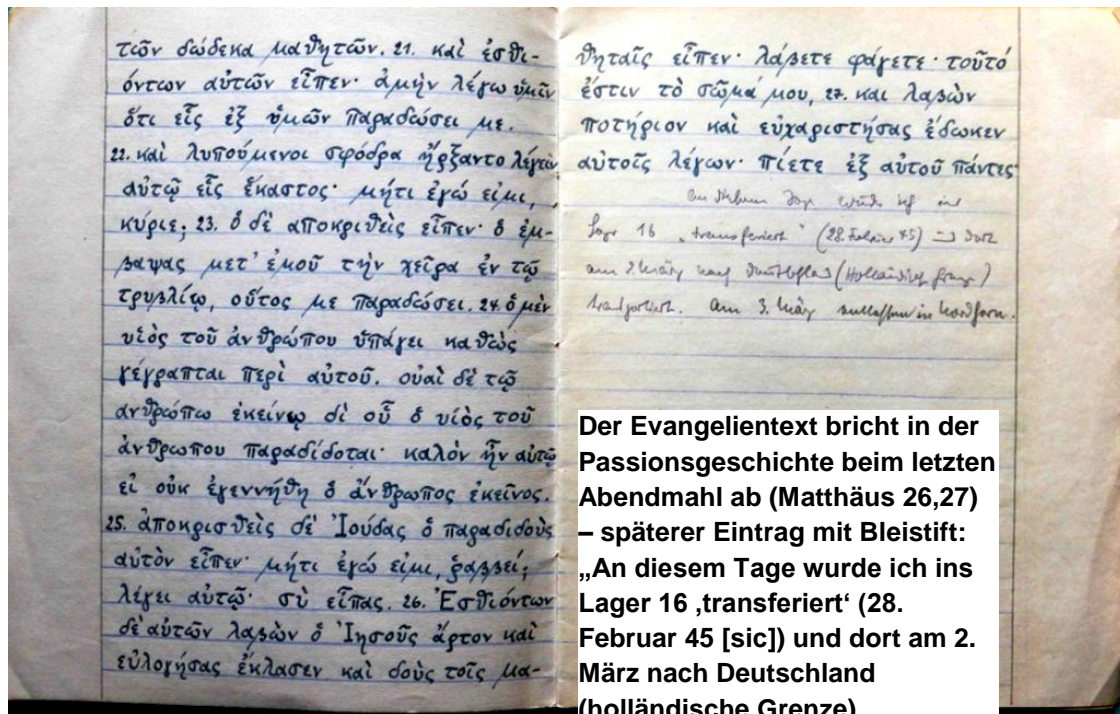 τῶν δώδεκα μαθητῶν. 21. καὶ ἐσθι-
όντων αὐτῶν εἶπεν· ἀμὴν λέγω ὑμῖν
ὅτι εἷς ἐξ ὑμῶν παραδώσει με.
22. καὶ λυπούμενοι σφόδρα ἤρξαντο λέγειν
αὐτῷ εἷς ἕκαστος· μήτι ἐγώ εἰμι,
κύριε; 23. ὁ δὲ ἀποκριθεὶς εἶπεν· ὁ ἐμ-
βαψας μετ' ἐμοῦ τὴν χεῖρα ἐν τῷ
τρυβλίῳ, οὗτος με παραδώσει. 24. ὁ μὲν
υἱὸς τοῦ ἀνθρώπου ὑπάγει καθὼς
γέγραπται περὶ αὐτοῦ. οὐαὶ δὲ τῷ
ἀνθρώπῳ ἐκείνῳ δι' οὗ ὁ υἱὸς τοῦ
ἀνθρωπου παραδίδοται· καλὸν ἦν αὐτῷ
εἰ οὐκ ἐγεννήθη ὁ ἄνθρωπος ἐκεῖνος.
25. ἀποκρισθεὶς δὲ Ἰούδας ὁ παραδιδοὺς
αὐτὸν εἶπεν· μήτι ἐγώ εἰμι, ῥαββεί;
λέγει αὐτῷ· σὺ εἶπας. 26. Ἐσθιόντων
δὲ αὐτῶν λαβὼν ὁ Ἰησοῦς ἄρτον καὶ
εὐλογήσας ἔκλασεν καὶ δοὺς τοῖς μα-
θηταῖς εἶπεν· λάβετε φάγετε· τοῦτό
ἐστιν τὸ σῶμά μου, 27. και λαβὼν
ποτήριον καὶ εὐχαριστήσας ἔδωκεν
αὐτοῖς λέγων· πίετε ἐξ αὐτοῦ πάντες
an diesem Tage wurde ich ins
Lager 16 „transferiert" (28. Februar 45) und dort
am 2. März nach Deutschland (Holländische Grenze)
transportiert. Am 3. März entlassen in
Der Evangelientext bricht in der
Passionsgeschichte beim letzten
Abendmahl ab (Matthäus 26,27)
– späterer Eintrag mit Bleistift:
„An diesem Tage wurde ich ins
Lager 16 ‚transferiert‘ (28.
Februar 45 [sic]) und dort am 2.
März nach Deutschland
(holländische Grenze)